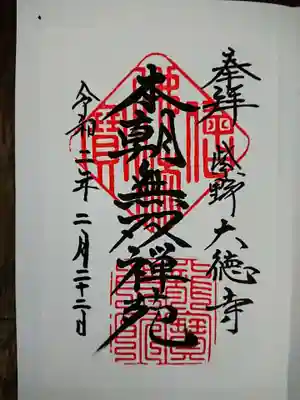 奉拝 紫野 大徳寺
本朝無双禅苑
令和二年 二月二十二日